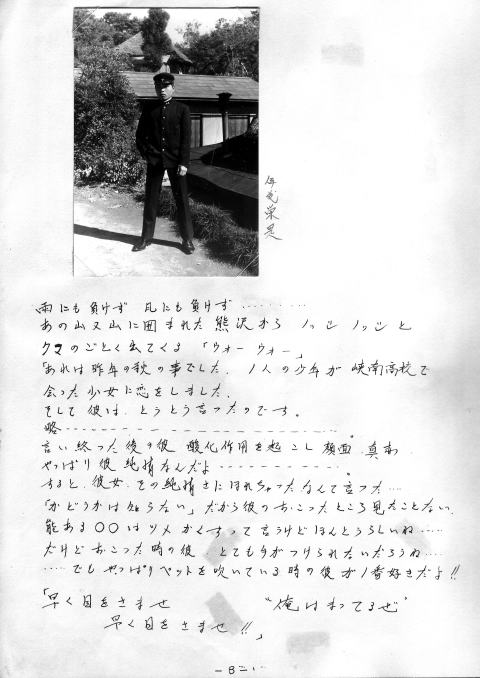 雨にも負けず 風にも負けず ………
あの山又山に囲まれた熊沢から ノッシ ノッシ と
クマのごとく出てくる「ウォー ウォー」
「あれは昨年の秋の事でした。1人の少年が 峡南高校で
会った少女に恋をしました。
そして彼は、とうとう言ったのです。
略
言い終った後の彼 酸化作用を起こし 顔面 真赤
やっぱり彼 純情なんだよ
すると、彼女、その純情さにほれちゃったなんて言った…
「かどうかは知らない」だから彼のおこったところ見たことない。
能ある〇〇はツメかくすって言うけどほんとうらしいね……
だけどおこった時の彼、とても手がつけられないだろうね……
……でもやっぱりペットを吹いている時の彼が1番好きだよ!!
「早く目をさませ “俺はまってるぜ”
早く目をさませ!!」